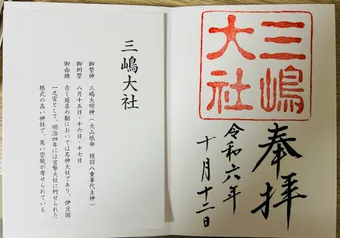 三嶋
大社
奉拝
令和六年
十月十二日
三嶋大社
御祭神 三嶋大明神(大山祇命 積羽八重事代主神)
御例祭 八月十五日・十六日・十七日
御由緒 古く延喜の制においては名神大社であり、伊豆国
一之宮として、明治四年には官幣大社に列せられた
格式の高い神社で、篤い崇敬が寄せられている